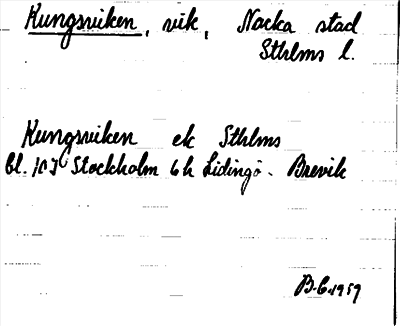 Kungsviken, vik, Nacka stad
Sthlms l.
Kungsviken ek Sthlms
bl. 10I Stockholm 6h Lidingö - Brevik
B.C. 1959